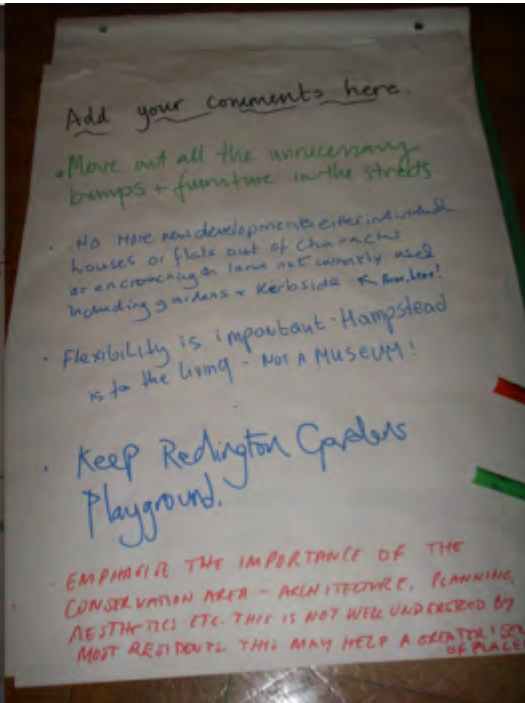 Add your comments here.
• Move out all the unnecessary
bumps + furniture in the streets
• No More new developments either individual
houses or flats out of character
or encroaching on land not currently used
including gardens + kerbside ← here!
• Flexibility is important - Hampstead
is for the living - NOT A MUSEUM!
• Keep Redington Gardens
Playground.
- EMPHASIZE THE IMPORTANCE OF THE
CONSERVATION AREA - ARCHITECTURE, PLANNING,
AESTHETICS ETC. THIS IS NOT WELL UNDERSTOOD BY
MOST RESIDENTS. THIS MAY HELP A GREATER 'SEN
OF PLACE